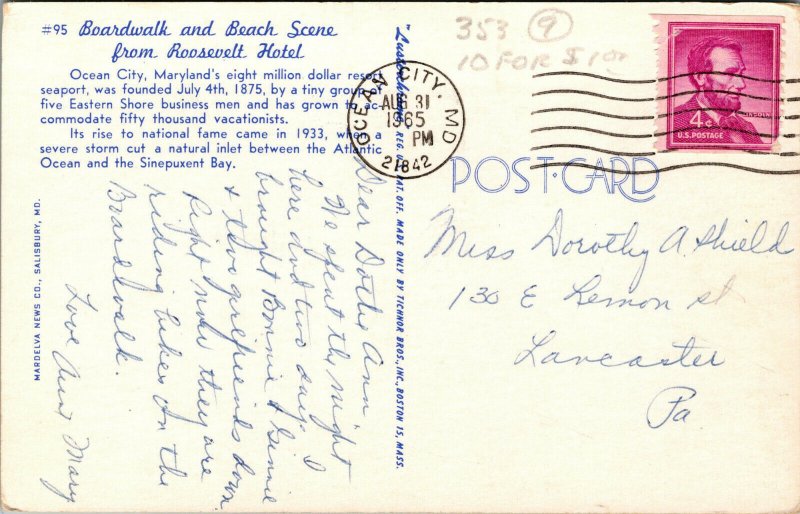 #95 Boardwalk and Beach Scene
from Roosevelt Hotel
Ocean City, Maryland's eight million dollar resort
seaport, was founded July 4th, 1875, by a tiny group of
five Eastern Shore business men and has grown to ac-
commodate fifty thousand vacationists.
Its rise to national fame came in 1933, when a
severe storm cut a natural inlet between the Atlantic
Ocean and the Sinepuxent Bay.
MARDELVA NEWS CO., SALISBURY, MD.
REG. U.S. PAT. OFF. MADE ONLY BY TICHNOR BROS., INC., BOSTON 15, MASS.
353 9
10 FOR $1
OCEAN CITY, MD
AUG 31
1965
PM
21842
4¢
LINCOLN
U.S. POSTAGE
POST-CARD
Dear Dottie Ann
We spent the night
here and two days. I
brought Bonnie & Ginnie
& two girlfriends down
Right now they are
riding bikes on the
Boardwalk.
Love Aunt Mary
Miss Dorothy A. Shield
130 E Lemon st
Lancaster
Pa.